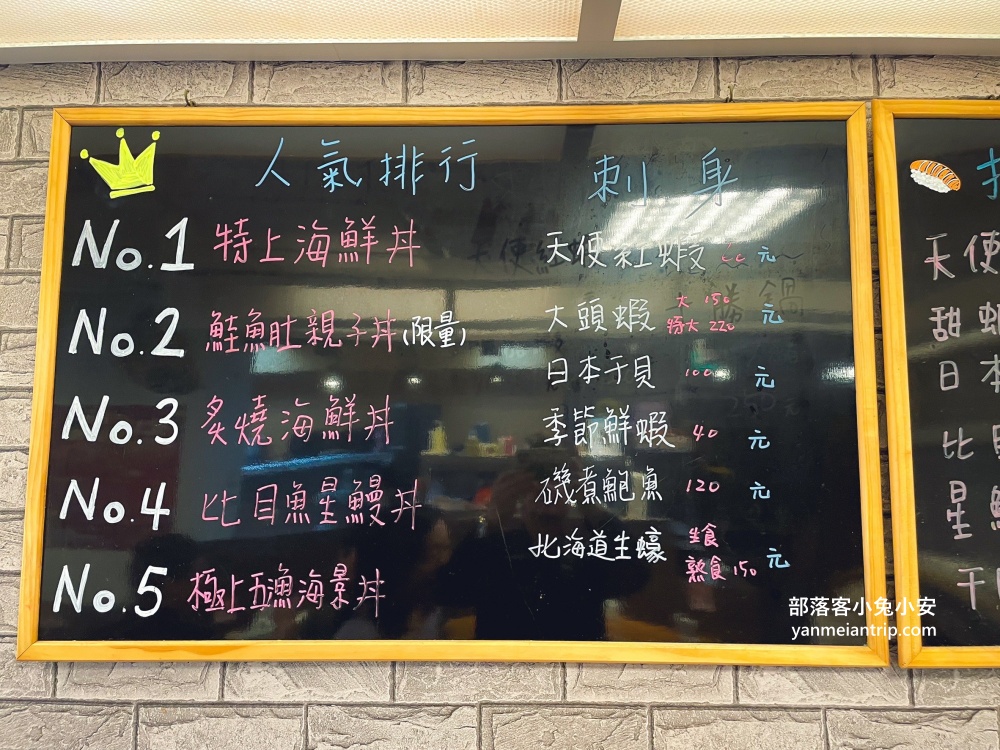 人氣排行
No.1 特上海鮮丼
No.2 鮭魚肚親子丼(限量)
No.3 炙燒海鮮丼
No.4 比目魚星鰻丼
No.5 極上五漁海景丼
刺身
天使紅蝦 元
大頭蝦 大 150 特大 220 元
日本干貝 100 元
季節鮮蝦 40 元
磯煮鮑魚 120 元
北海道生蠔 生食 熟食 150 元
天使
甜蝦
日本
比
星鰻
干
部落客小兔小安
yanmeiantrip.com